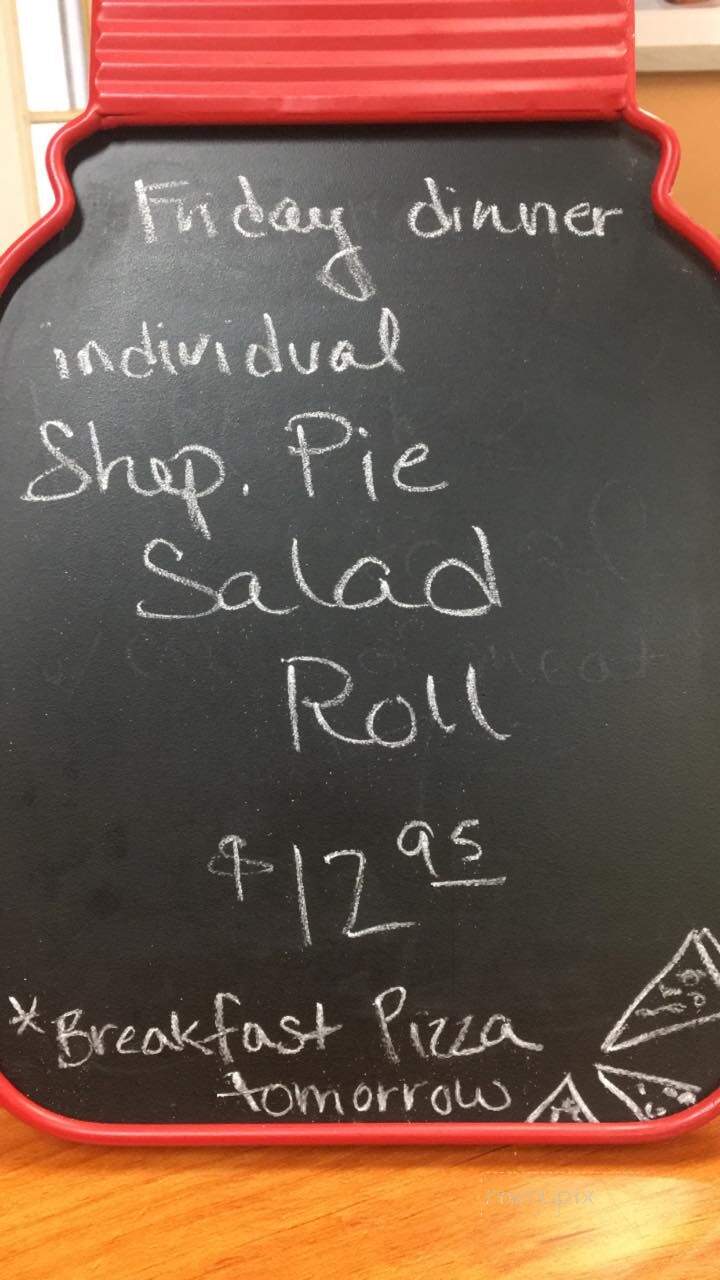 Friday dinner
individual
Shep. Pie
Salad
Roll
$12 95
*Breakfast Pizza
tomorrow